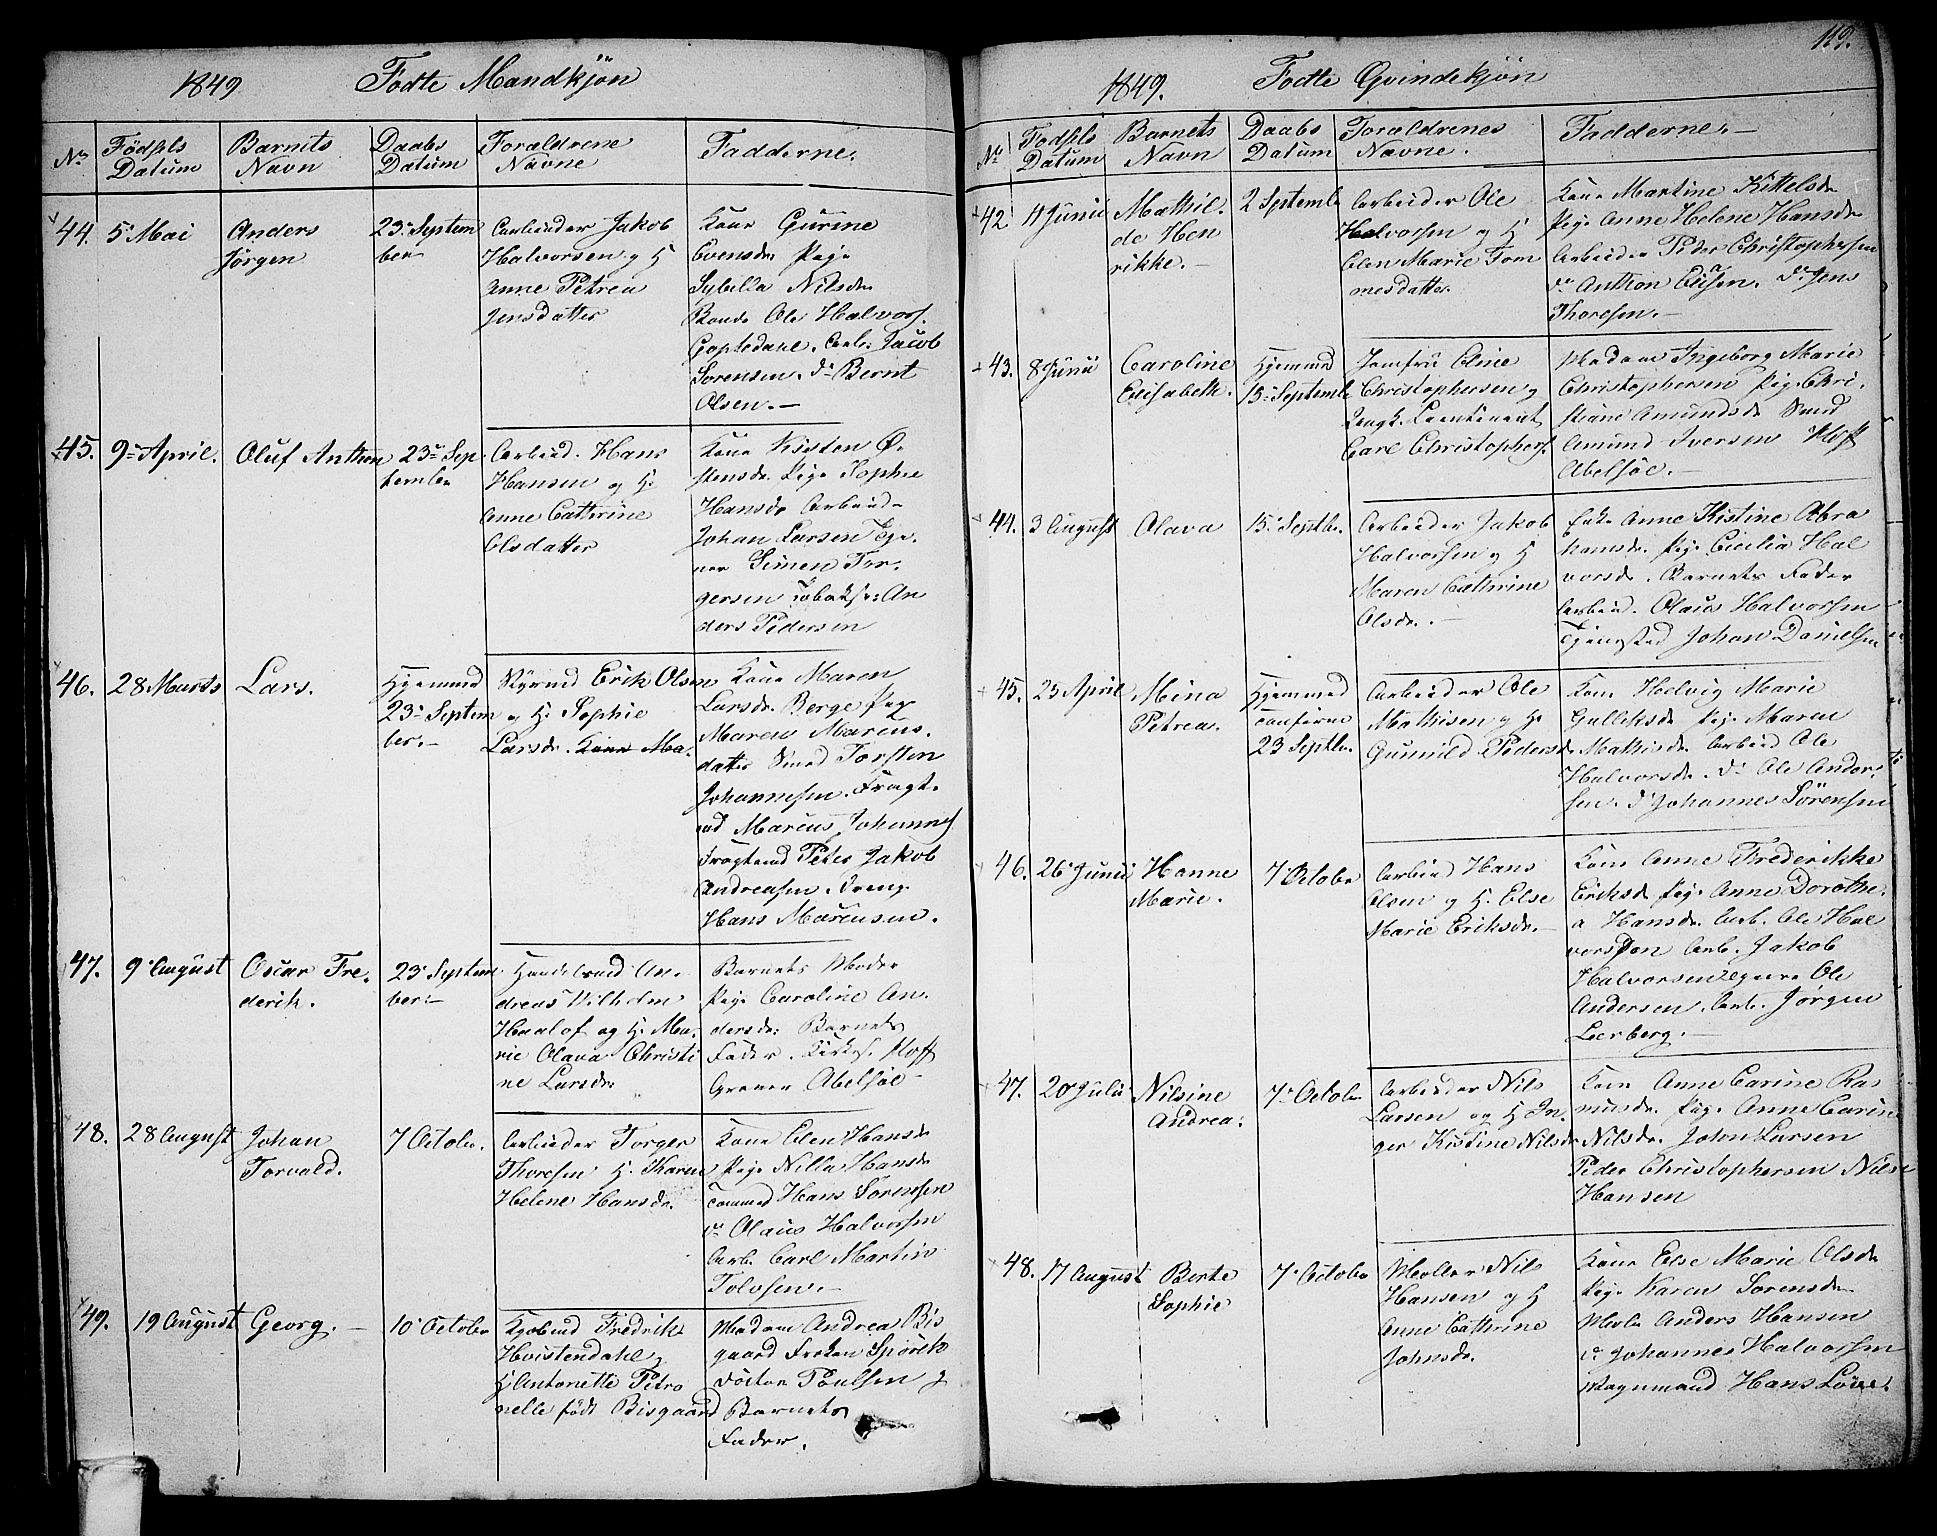 1849 Födte Mandkjön
No Födsels Datum
Barnets Navn
Daabs Datum
Forældrene Navne
Fadderne.
44. 5 Mai
Anders
Jörgen
23 Septem
ber
Arbeider Jakob
Halvorsen og H
Anne Petrea
Jensdatter
Kone Gurine
Evensdr Pige
Sybilla Nilsdr
Bonde Ole Halvors.
Gopledahl. Arb. Jacob
Sorensen. do Bernt
Olsen.—
45. 9 April.
Oluf Anthon
23 Sep
tember
Arbeid. Hans
Hansen og H.
Anne Cathrine
Olsdatter
Kone Kisten Ö
stensdr Pige Sophie
Hansdr Arbeid
Johan Larsen
Simen Tor
gersen An
ders Pedersen
46. 28 Marts
Lars.
Hjemmed
23 Septem
ber.—
Styrmd Erik Olsen
og H. Sophie
Larsdr. Kone Ma.
Kone Maren
Larsdr. Berge Pige
Maren Marcus.
datter Smed Torsten
Johannesen. Fragt.
md Marcus Johannes
Fragtmd Peter Jakob
Andreasen. Dreng
Hans Marcusen.
47. 9 August
Oscar Fre.
derik.
23 Septem
ber.—
Handelsmd An.
dreas Vilhelm
og H. Ma.
rie Olava Christi
ne Larsdr
Barnets Moder
Pige Caroline An.
dersdr: Barnets
Fader. Kirkes. Hoff
Graver Abelsöe
48. 28 August
Johan
Torvald.
7 Octobr.
Arbeider Torger
Thoresen H. Karen
Helene Hansdr.
Kone Elen Hansdr
Pige Nilla Hansdr
Tommed Hans Sorensen
do Olaus Halvorsen
Arb. Carl Martin
Tolvsen.—
49. 19 August
Georg.—
10 October
Kjöbmd Fredrik
Hvistendahl
H Antonette Petro
nelle född Bisgaard
Madam Andrea Bis
gaard Fröken Spörck
Doctor Poulsen
Barnets
Fader.
119.
1849. Fodte Qvindekjön
No Fodsels Datum
Barnets Navn
Daabs Datum
Forældrenes Navne.
Fadderne.—
42. 11 Junii
Mathil.
de Hen
rikke.—
2 Septembr
Arbeider Ole
Halvorsen og H
Elen Marie Tom
mesdatter
Kone Martine Kittelsdr
Pige Anne Helene Hansdr
Arbeider Peder Christophersen
do Anthon Elisen. do Jens
Thoresen.—
43. 8 Junii
Caroline
Elisabeth.
Hjemmed
15 Septembr
Jomfru Eline
Christophersen og
Lieutenant
Carl Christophers.
Madam Ingeborg Marie
Christophersen Pige Chri.
stiane Amundsdr Smed
Amund Iversen Hoff
Abelsöe.—
44. 3 August
Olava
15 Septbr.
Arbeider Jakob
Halvorsen og H
Maren Cathrine
Olsdr.—
Enke Anne Kistine Abra
hamsdr. Pige Cicilia Hal
vorsdr. Barnets Fader
Arbeid. Olaus Halvorsen
Johan Danielsen
45. 23 April
Mina
Petrea.
Hjemmed
23 Septbr.
Arbeider Ole
Mathisen og H.
Gunnild Pedersdr
Kone Helvig Marie
Gulliksdr Pige Maren
Mathisdr. Arbeid Ole
Halvorsdr. do Ole Ander.
sen. do Johannes Sörensen
46. 26 Junii
Hanne
Marie.
7 Octobr
Arbeid Hans
Olsen og H. Else
Marie Eriksdr.—
Kone Anne Frederikke
Eriksdr Pige Anne Dorothe.
a Hansdr. Arb. Ole Hal
vorsson Arb. Jakob
Halvorsen Ole
Andersen. Arb. Jörgen
Lerberg.—
47. 20 Julii
Nilsine
Andrea.
7 Octobr
Arbeider Nils
Larsen og H In.
ger Kistine Nilsdr
Kone Anne Carine Ras
musdr. Pige Anne Carin
Nilsdr. John Larsen
Peder Christophersen Nils
Hansen
48. 17 August
Berte
Sophie
7 Octobr
Moller Nils
Hansen og H
Anne Cathrine
Johnsdr.
Kone Else Marie Olsdr
Pige Karen Sorensdr
Moller Anders Hansen
do Johannes Halvorsen
Hans